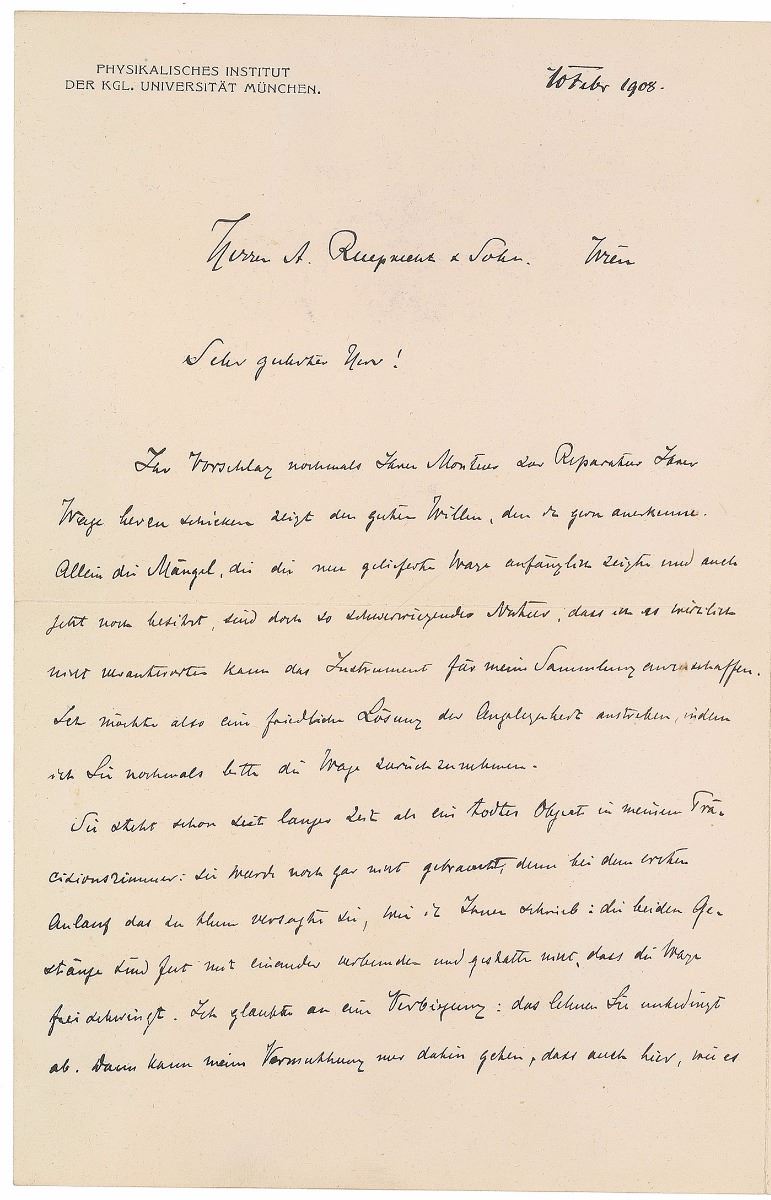 PHYSIKALISCHES INSTITUT
DER KGL. UNIVERSITÄT MÜNCHEN.
10 Febr 1908.
Herren A. Rueprecht & Sohn. Wien
Sehr geehrter Herr!
Ihr Vorschlag nochmals Ihren Monteur zur Reparatur Ihrer
Wage schicken zeigt den guten Willen, den ich gern anerkenne.
Allein die Mängel, die die neu gelieferte Wage anfänglich zeigte und auch
jetzt noch besitzt, sind doch so schwerwiegender Natur, dass ich es wirklich
nicht verantworten kann das Instrument für meine Sammlung anzuschaffen.
Ich möchte also eine friedliche Lösung der Angelegenheit anstreben, indem
ich Sie nochmals bitte die Wage zurückzunehmen.
Sie steht schon seit langer Zeit als ein todtes Object in meinem Prä-
cisionszimmer: sie wurde noch gar nicht gebraucht, denn bei dem ersten
Anlauf das zu thun versagte sie, wie ich Ihnen schrieb: die beiden Ge-
stänge sind fest mit einander verbunden und gestatten nicht, dass die Wage
frei schwingt. Ich glaubte an eine Verbiegung: das lehnen Sie unbedingt
ab. Dann kann meine Vermuthung nur dahin gehen, dass auch hier, wie es